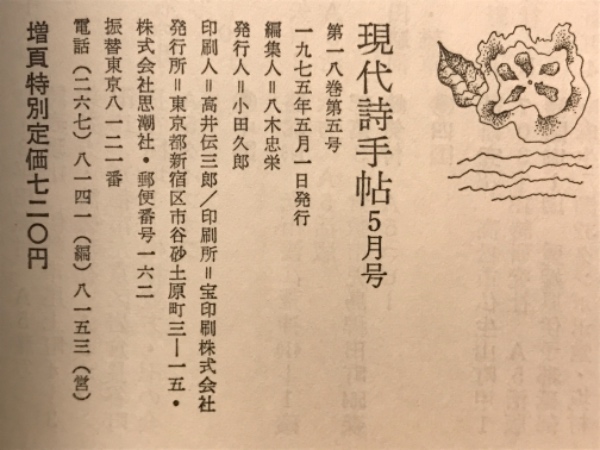 現代詩手帖5月号
第一八巻第五号
一九七五年五月一日発行
編集人＝八木忠栄
発行人＝小田久郎
印刷人＝高井伝三郎／印刷所＝宝印刷株式会社
発行所＝東京都新宿区市谷砂土原町三―一五・
株式会社思潮社・郵便番号一六二
振替東京八一二一番
電話（二六七）八一四一（編）八一五三（営）
増頁特別定価七二〇円